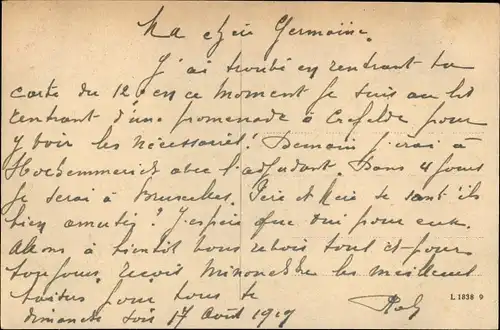 Ma chère Germaine.
J'ai trouvé en rentrant ta
carte du 12. en ce moment je suis au lit
rentrant d'une promenade à Crefelds pour
y voir les nécessaries! Demain j'irai à
Hochemmerich avec l'adjudant. Dans 4 jours
je serai à Bruxelles. Père et Mère se sont ils
bien amusés? J'espère que oui pour eux.
Allons à bientôt vous revoir tout et pour
toujours. reçois Minonche les meilleurs
pour tous te
dimanche soir 17 Août 1919
L 1838 9